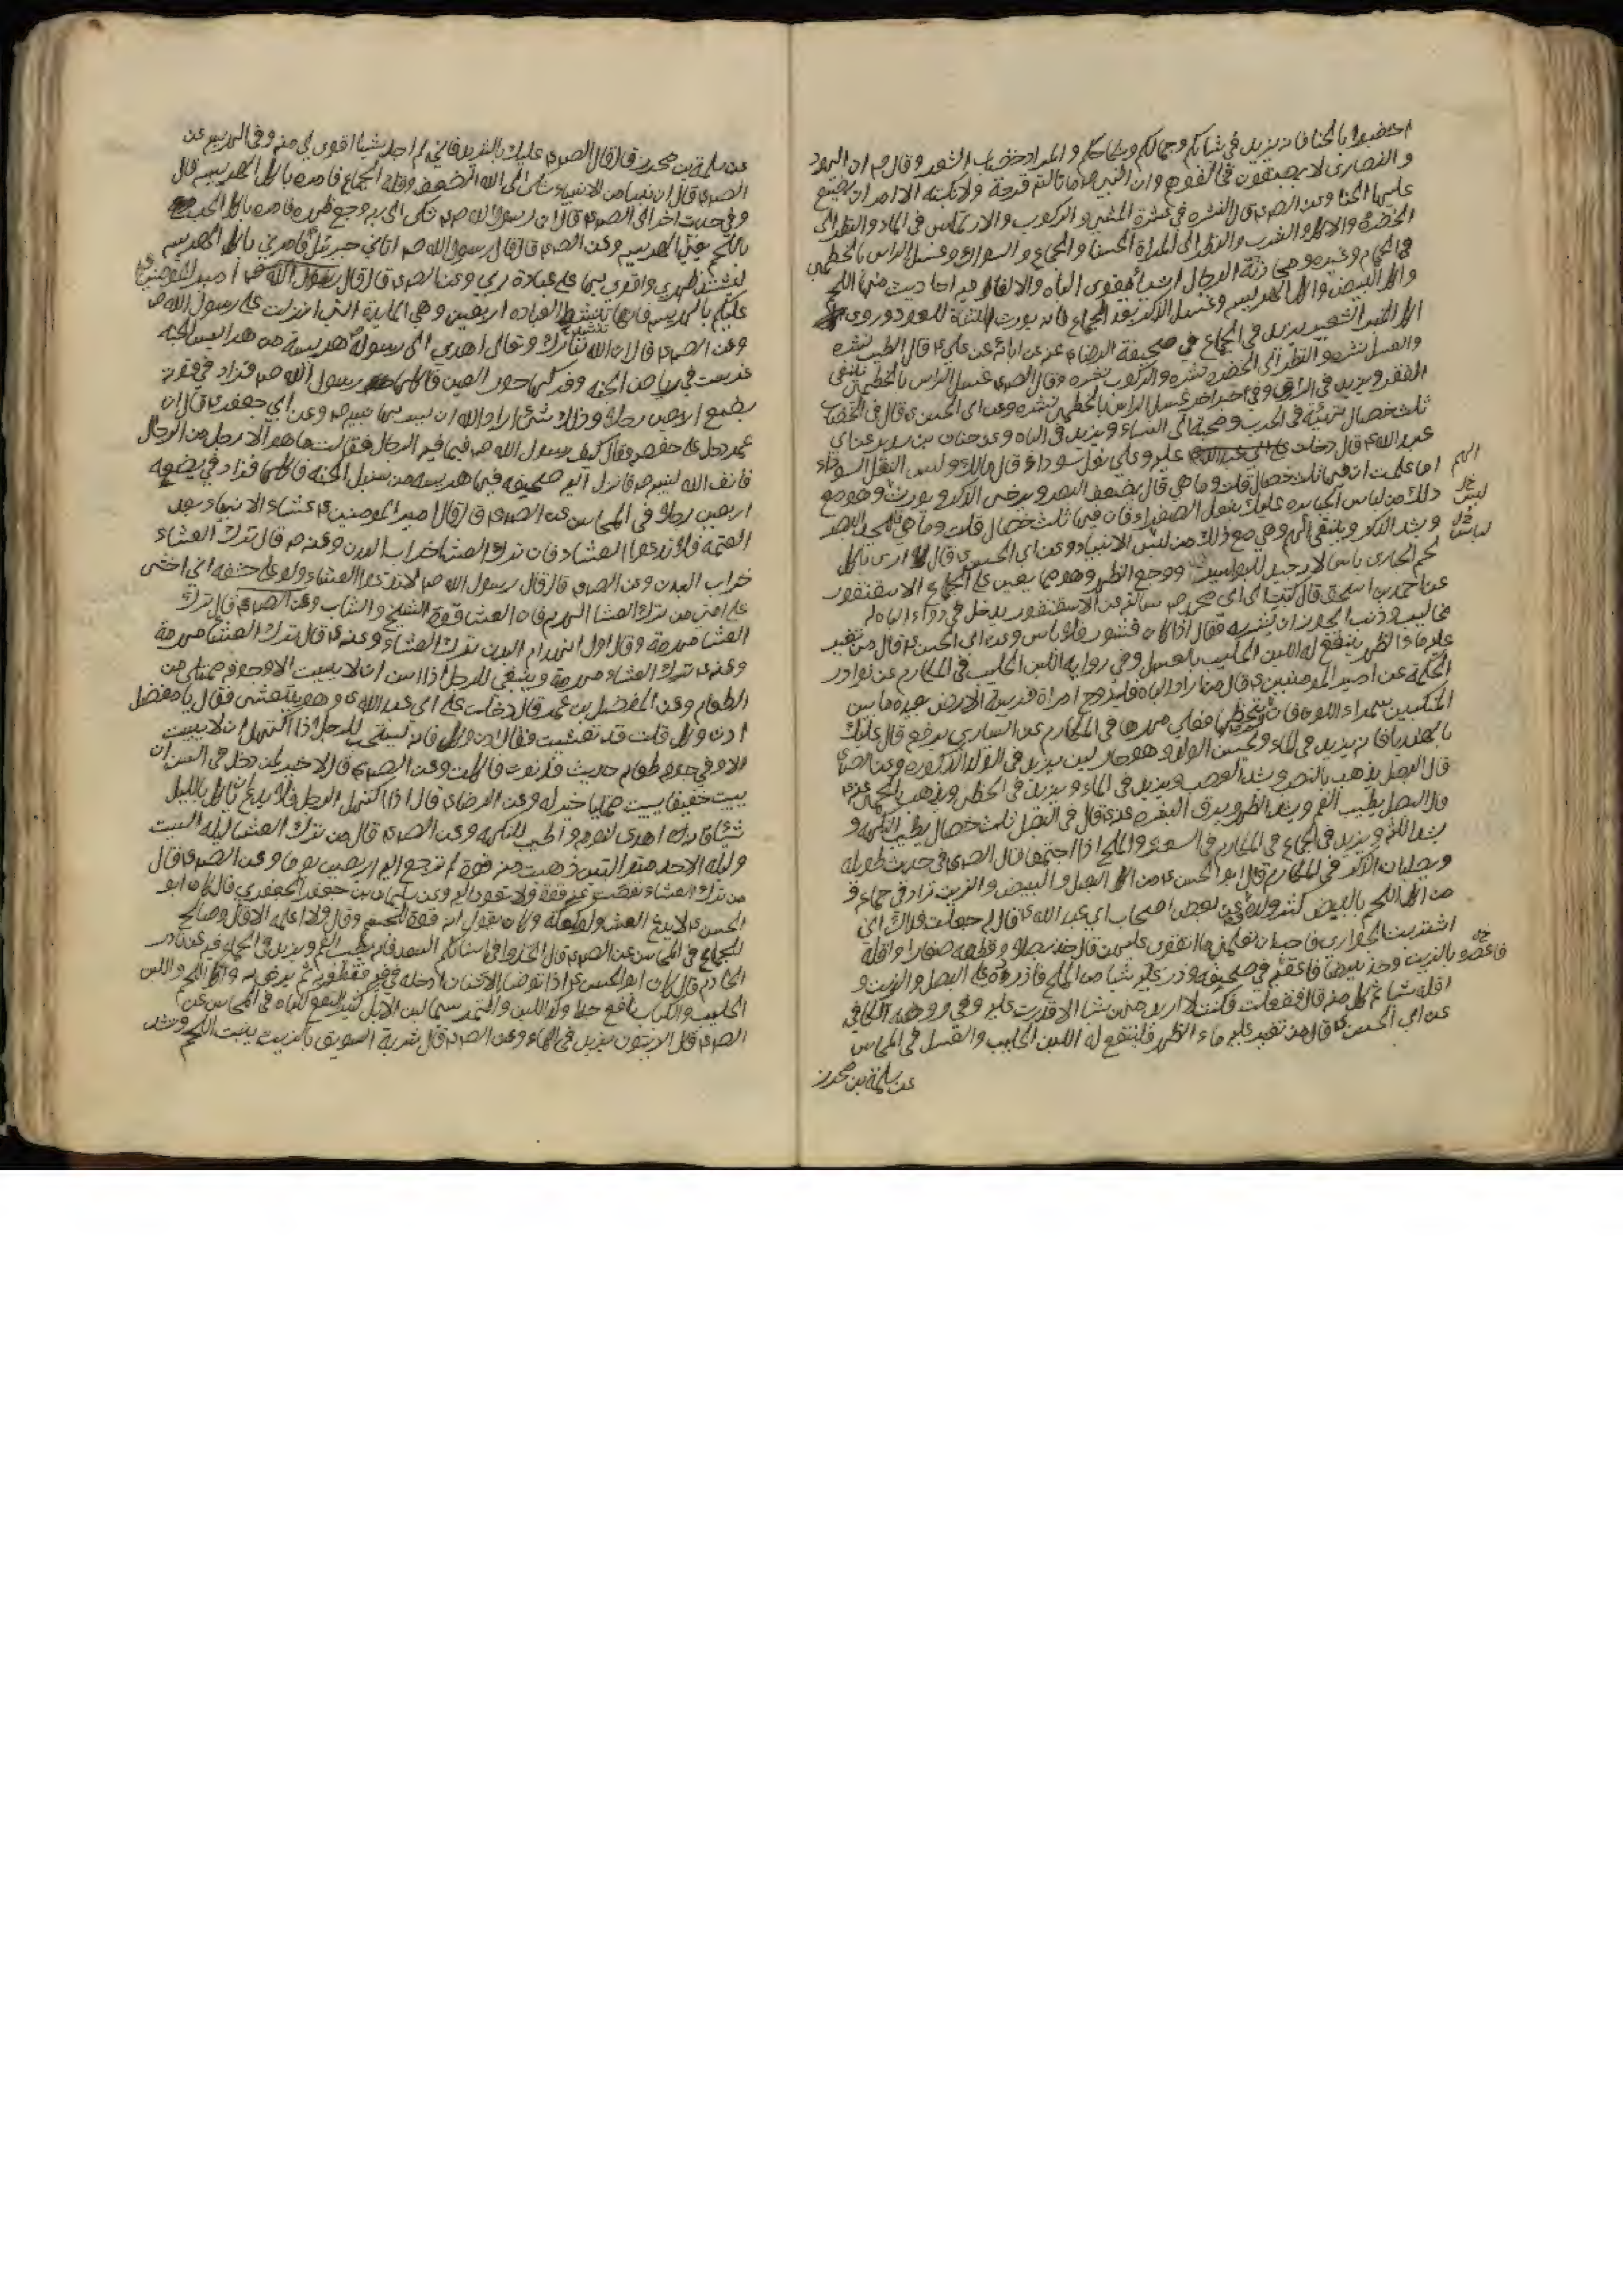 اختضبوا بالحنا فانه يزيد في شبابكم وجمالكم ونكاحكم والمراد خضاب الشعر وقال ص ان اليهود
والنصارى لا يصبغون وان النبي ص ما نالته قرحة ولا نكبة الا امر ان يضع
عليها الحنا وعن الص ع قال النشره في عشرة المشي والركوب والارتماس في الماء والنظر الى
الخضرة والاكل والشرب والنظر الى المراة الحسنا والجماع والسواك وغسل الراس بالخطمي
في الحمام وغيره ومحادثة الرجال
واكل البيض واكل الهريس وغسل الذكر بعد الجماع فانه يورث
اكل يزيد في الجماع في صحيفة الرضا ع عن ابائه عن علي ع قال الطيب نشره
والعسل نشره والنظر الى الخضره نشره والركوب نشره وقال الص ع غسل الراس بالخطمي ينفي
الفقر ويزيد في الرزق وفي اخر غسل الراس بالخطمي نشره وعن ابي الحسن ع قال في الخضاب
ثلث خصال في الحرب ومحبة الى النساء ويزيد في الباه وعن حنان بن سدير عن ابي
عبد الله ع قال دخلت عليه وعلي نعل سوداء فقال مالك ولبس النعل السوداء
اما علمت ان فيها ثلث خصال قلت وما هي قال يضعف البصر ويرخي الذكر ويورث الهم وهو مع
ذلك من لباس الجبابره عليك بنعل الصفراء فان فيها ثلث خصال قلت وما هي قال يحد البصر
ويشد الذكر وينفي الهم وهي مع ذلك من لبس الانبياء وعن ابي الحسن ع قال لا ارى باكل
لحم الحبارى باس لانه جيد للبواسير ووجع الظهر وهو مما يعين على الجماع الاسقنقور
عن احمد بن اسحق قال كتبت الى ابي محمد ع سالته عن الاسقنقور يدخل في دواء الباه له
مخاليب وذنب ايجوز ان يشربه فقال اذا كان له قشور فلا باس وعن ابي الحسن ع قال من تغير
عليه ماء الظهر ينفع له اللبن الحليب بالعسل وفي روايه اللبن الحليب في المكارم عن نوادر
الحكمة عن امير المومنين ع قال من اراد الباه فليتزوج امراة قريبة الارض بعيدة ما بين
المنكبين سمراء اللون فان لم يحظها فعلي مهرها في المكارم عن السياري يرفع قال عليك
بالهندبا فانه يزيد في الماء ويحسن الولد وهو حار لين يزيد في الولد الذكوره وعن الص ع
قال البصل يذهب بالنصب ويشد العصب ويزيد في الماء ويزيد في الخطى ويذهب بالحمى عنه ع
قال البصل يطيب الفم ويشد الظهر ويرق البشره عنه ع قال في البصل ثلث خصال يطيب النكهة و
يشد اللثة ويزيد في الجماع في المكارم في السعتر والملح اذا اجتمعا قال الص ع في حديث طويله
ويصلبان الذكر في المكارم قال ابو الحسن ع من اكل البصل والبيض والزيت زاد في جماعه و
من اكل اللحم بالبيض كثر ولده عن بعض اصحاب ابي عبد الله ع قال له جعلت فداك اني
اشتريت الجواري فاحب ان تعلمني ما اتقوى عليهن قال خذ بصلا وقطعه صغارا واقله
بالزيت وخذ بيضا فافقصه في صحيفة وذر عليه شيا من الملح فاذره على البصل والزيت و
اقله شيا ثم كل منه قال ففعلت فكنت لا اريد منهن شيا الا قدرت عليه وفي روضة الكافي
عن ابي الحسن ع قال من تغير عليه ماء الظهر فلينفع له اللبن الحليب والعسل في المحاسن
عن سلمة بن محرز
الهم
لبس خل
لباس خل
عن سلمة بن محرز قال قال الص ع عليك بالثريد فاني لم اجد شيا اقوى لي منه وفي الهريس عن
الص ع قال ان نبيا من الانبياء شكى الى الله الضعف وقلة الجماع فامره باكل الهريسه قال
وفي حديث اخر الى الص ع قال ان رسول الله ص شكى الى ربه وجع ظهره فامره باكل الحب
باللحم يعني الهريسه وعن الص ع قال قال رسول الله ص اتاني جبرئيل فامرني باكل الهريسه
ليشتد ظهري واقوى بها على عبادة ربي وعن الص ع قال قال امير المومنين ع
عليكم بالهريسه فانها تنشط للعباده اربعين وهي المايدة التي انزلت على رسول الله ص
وعن الص ع قال ان الله تبارك وتعالى اهدى الى رسوله ص هريسة من هرايس الجنه
غرست في رياض الجنه وفركها حور العين فاكلها رسول الله ص فزاد في قوته
بضع اربعين رجلا وذلك شئ اراد الله ان يسر بها نبيه ص وعن ابي جعفر ع قال ان
عمر دخل على حفصه فقال كيف رسول الله ص فيما فيه الرجال فقالت ما هو الا رجل من الرجال
فانف الله لنبيه ص فانزل اليه صحيفه فيها هريسه من سنبل الجنه فاكلها فزاد في بضعه
اربعين رجلا في المحاسن عن الص ع قال قال امير المومنين ع عشاء الانبياء بعد
العتمه فلا تدعوا العشاء فان ترك العشا خراب البدن وعنه ص قال ترك العشاء
خراب البدن وعن الص ع قال قال رسول الله ص لا تدعوا العشاء ولو على حشفه اني اخشى
على امتي من ترك العشا الهرم فان العشا قوة الشيخ والشاب وعن الص ع قال ترك
العشا مهرمة وقال اول انهدام البدن ترك العشاء وعنه ع قال ترك العشا مهرمة
وعنه ع ترك العشاء مهرمة وينبغي للرجل اذا اسن ان لا يبيت الا وجوفه ممتلى من
الطعام وعن المفضل بن عمر قال دخلت على ابي عبد الله ع وهو يتعشى فقال يا مفضل
ادن وكل قلت قد تعشيت فقال ادن وكل فانه يستحب للرجل اذا اكتهل ان لا يبيت
الا وفي جوفه طعام حديث فدنوت فاكلت وعن الص ع قال لا خير لمن دخل في السن ان
يبيت خفيفا يبيت ممتليا خير له وعن الرضا ع قال اذا اكتهل الرجل فلا يدع ان ياكل بالليل
شيئا فانه اهدى لنومه واطيب للنكهه وعن الص ع قال من ترك العشا ليله السبت
وليله الاحد متواليتين ذهبت منه قوة لم ترجع اليه اربعين يوما وعن الص ع قال
من ترك العشاء نقصت عنه قوة ولا تعود اليه وعن سليمان بن جعفر الجعفري قال كان ابو
الحسن ع لا يدع العشاء ولو كعكة وكان يقول انه قوة للجسم وقال ولا اعلمه الا قال وصالح
للجماع في المحاسن عن الص ع قال اتخذوا في اسنانكم السعد فانه يطيب الفم ويزيد في الجماع فيه عن نادر
الخادم قال كان ابو الحسن ع اذا توضا بالاشنان ادخله في فيه فتطعم به ثم يرمي به واكل اللحم واللبن
الحليب والكباب نافع جدا وكذا اللبن والتمر سيما لبن الابل كثير النفع للباه في المحاسن عن
الص ع قال الزيتون يزيد في الماء وعن الص ع قال شربة السويق بالزيت ينبت اللحم ويشد